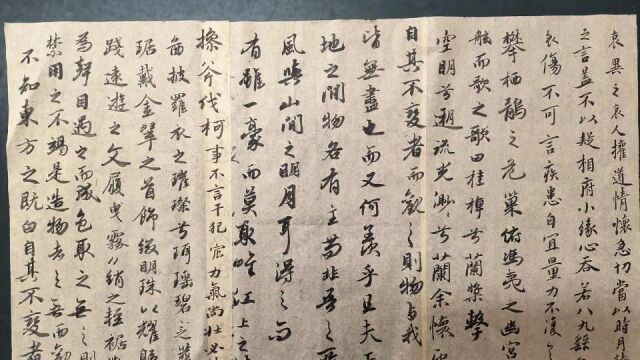 哀異之哀人權道情懷急切當以時月
之言蓋不以疑相府小緣心吞若八九
哀傷不可言疾患自宜量力不復
攀栖鶻之危巢俯馮夷之幽宮
舷而歌之歌曰桂棹兮蘭槳擊
空明兮遡流光渺兮蘭余懷
自其不變者而觀之則物與我
皆無盡也而又何羨乎且夫
地之間物各有主苟非吾之所
風與山間之明月耳得之而
有雖一豪而莫取唯江上之
操斧伐柯事不言干犯宏力氣尚壯必
披羅衣之璀璨兮珥瑤碧之華
琚戴金翠之首飾綴明珠以耀軀
踐遠遊之文履曳霧綃之輕裾
為聲目遇之而成色取之無
禁用之不竭是造物者之無而觀
不知東方之既白自其不變者